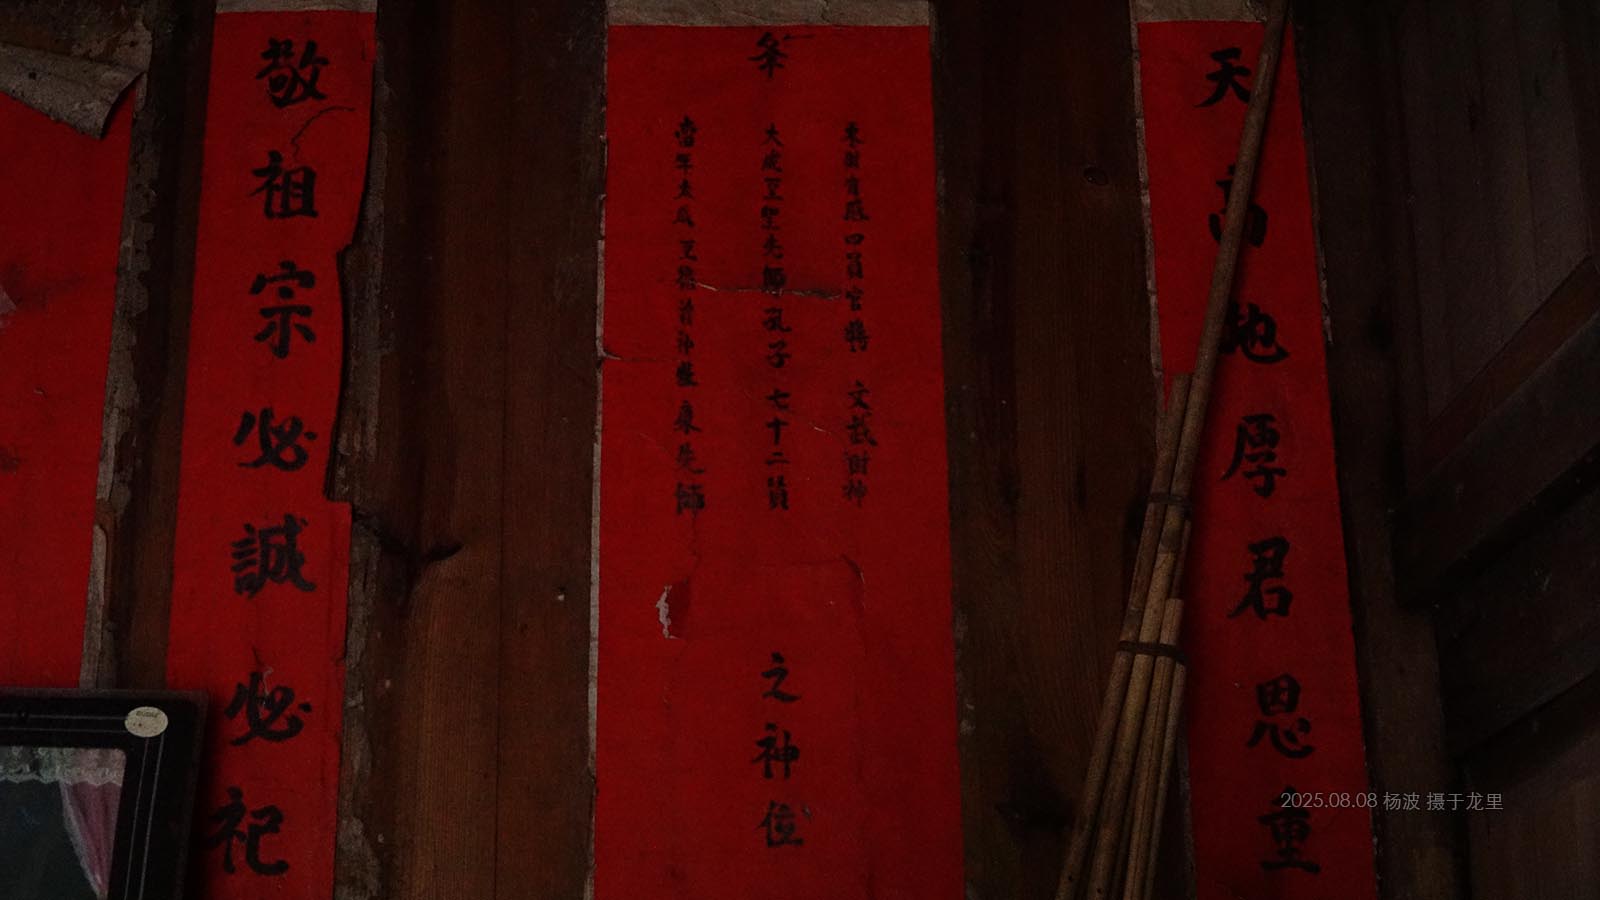 天高地厚君恩重
夆
東廚育厩四員官將 文哉財神
大成至聖先師孔子七十二員
當年太歲至德尊神 東先師
之神位
敬祖宗必誠必祀
2025.08.08 杨波 摄于龙里